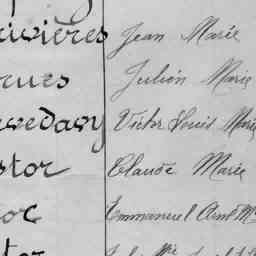 ivières Jean Marie
rues Julien Marie
vedavy Victor Louis Marie
stor Claude Marie
oc Emmanuel Aimé M
tor